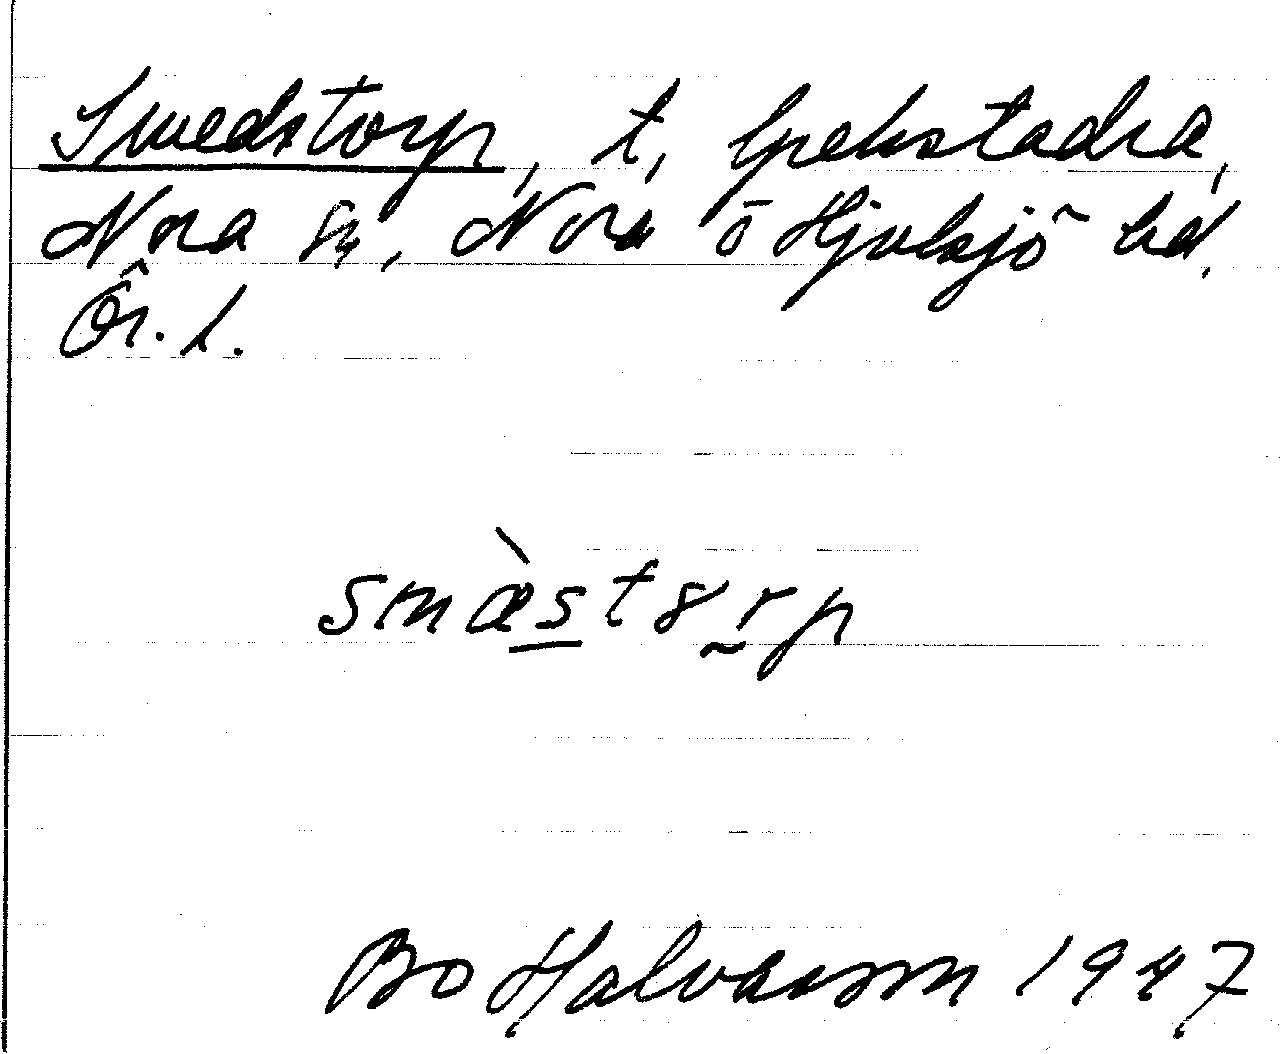 Smedstorp, t, Spekstadra,
Nora sn, Nora o Hjulsjö hd,
Ör. l.
smæ̀st8rp
Bo Halvarson 1947